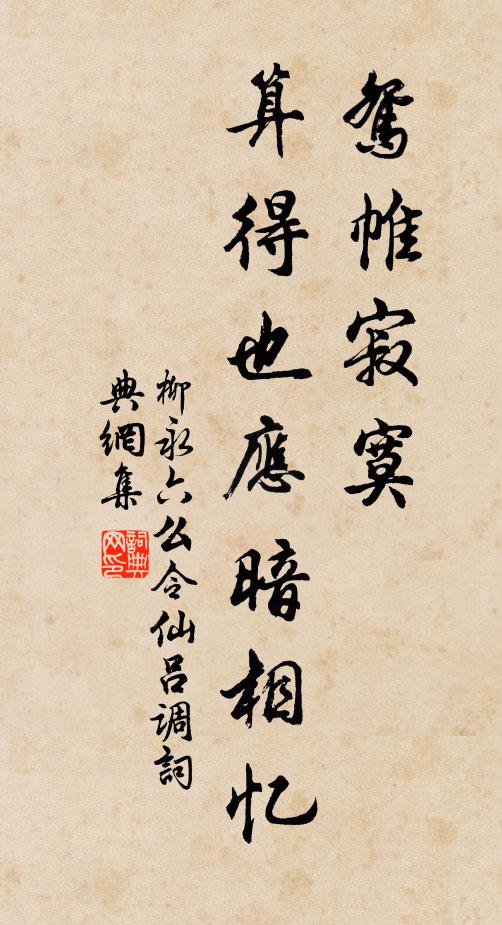 鴛帷寂寞
算得也應暗相忆
柳永六么令仙吕调詞
典網集
詞典
网印